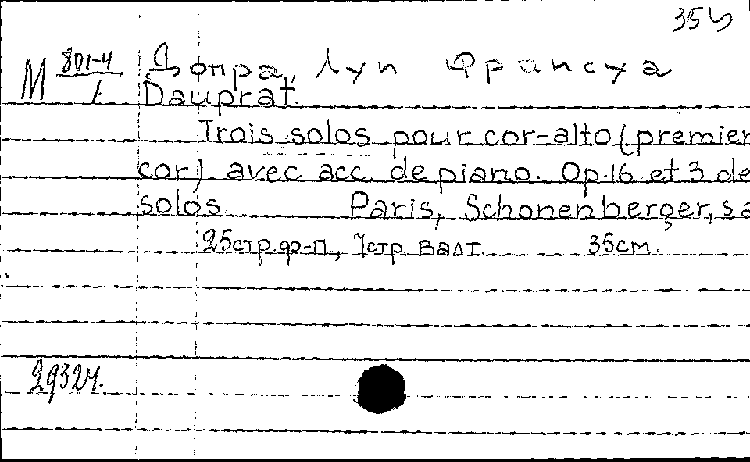 35
М 801-4/1 Допра, Луи Франсуа
Dauprat.
Trois solos pour cor-alto (premier
cor) avec acc. de piano. Op.16 et 3 de
solos. Paris, Schonenberger, sa
25стр. ф-п., 7стр. валт. 35см.
29324.